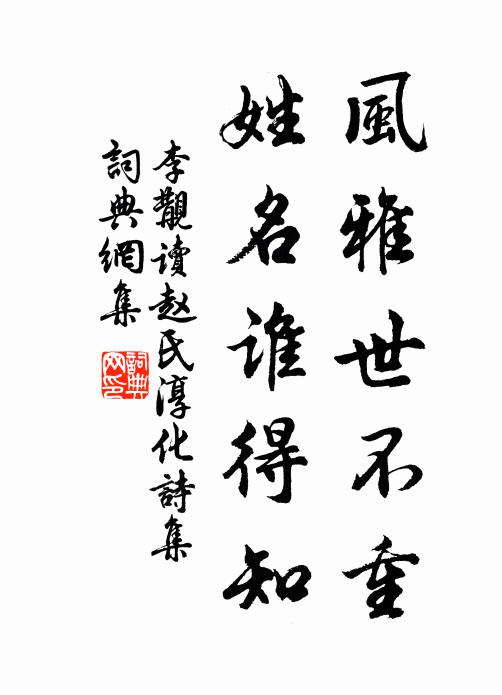 風雅世不重
姓名谁得知
李覯读赵氏淳化詩集
詞典網集
詞典网印